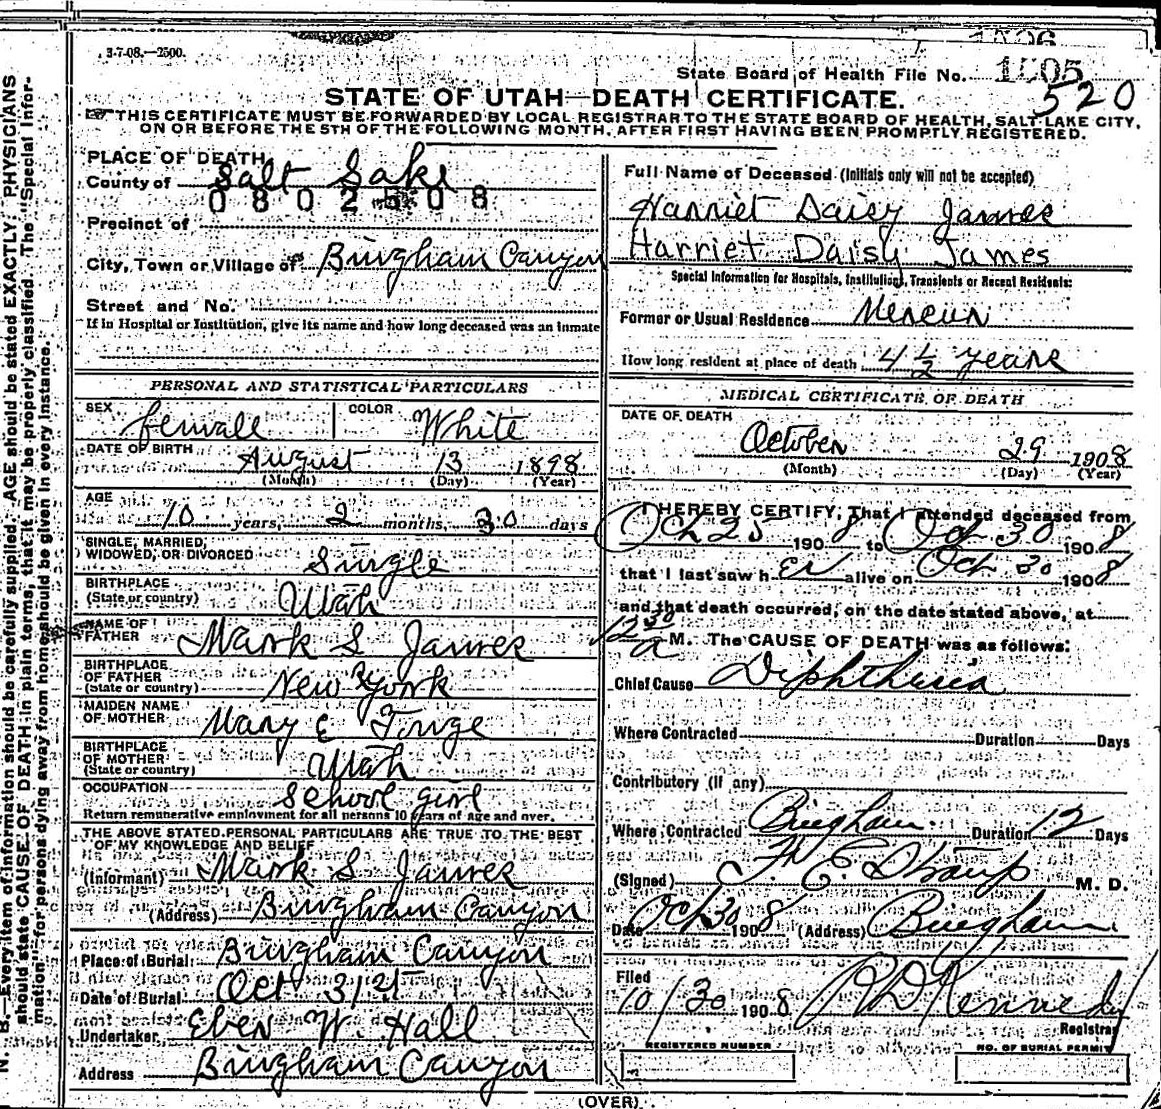 3-7-08.—2500.
1505
State Board of Health File No.
520
STATE OF UTAH—DEATH CERTIFICATE.
THIS CERTIFICATE MUST BE FORWARDED BY LOCAL REGISTRAR TO THE STATE BOARD OF HEALTH, SALT LAKE CITY,
ON OR BEFORE THE 5TH OF THE FOLLOWING MONTH, AFTER FIRST HAVING BEEN PROMPTLY REGISTERED.
PLACE OF DEATH
County of Salt Lake
Precinct of
City, Town or Village of Bingham Canyon
Street and No.
If in Hospital or Institution, give its name and how long deceased was an inmate
PERSONAL AND STATISTICAL PARTICULARS
SEX female COLOR White
DATE OF BIRTH August 13 1898
(Month) (Day) (Year)
AGE 10 years, 2 months, days
SINGLE, MARRIED,
WIDOWED, OR DIVORCED Single
BIRTHPLACE
(State or country) Utah
NAME OF
FATHER Mark S James
BIRTHPLACE
OF FATHER
(State or country) New York
MAIDEN NAME
OF MOTHER Mary E
BIRTHPLACE
OF MOTHER
(State or country) Utah
OCCUPATION School girl
Return remunerative employment for all persons 10 years of age and over.
THE ABOVE STATED PERSONAL PARTICULARS ARE TRUE TO THE BEST
OF MY KNOWLEDGE AND BELIEF
(Informant) Mark S James
(Address) Bingham Canyon
Place of Burial Bingham Canyon
Date of Burial Oct 31st
Undertaker Eber W. Hall
Address Bingham Canyon
Full Name of Deceased (Initials only will not be accepted)
Harriet Daisy James
Harriet Daisy James
Special Information for Hospitals, Institutions, Transients or Recent Residents:
Former or Usual Residence Mercur
How long resident at place of death 4 1/2 years
MEDICAL CERTIFICATE OF DEATH
DATE OF DEATH
October 29 1908
(Month) (Day) (Year)
I HEREBY CERTIFY, That I attended deceased from
Oct 25 1908 to Oct 30 1908
that I last saw her alive on Oct 30 1908
and that death occurred, on the date stated above, at
12 30 a M. The CAUSE OF DEATH was as follows:
Chief Cause Diphtheria
Where Contracted Duration Days
Contributory (if any)
Where Contracted Bingham Duration 12 Days
(Signed) F. E. Straup M. D.
Date Oct 30 1908 (Address) Bingham
Filed
10/30 1908 Kennedy
Registrar
REGISTERED NUMBER NO. OF BURIAL PERMIT
(OVER)
N. B.—Every item of information should be carefully supplied. AGE should be stated EXACTLY. PHYSICIANS
should state CAUSE OF DEATH in plain terms, that it may be properly classified. The "Special Infor-
mation" for persons dying away from home should be given in every instance.